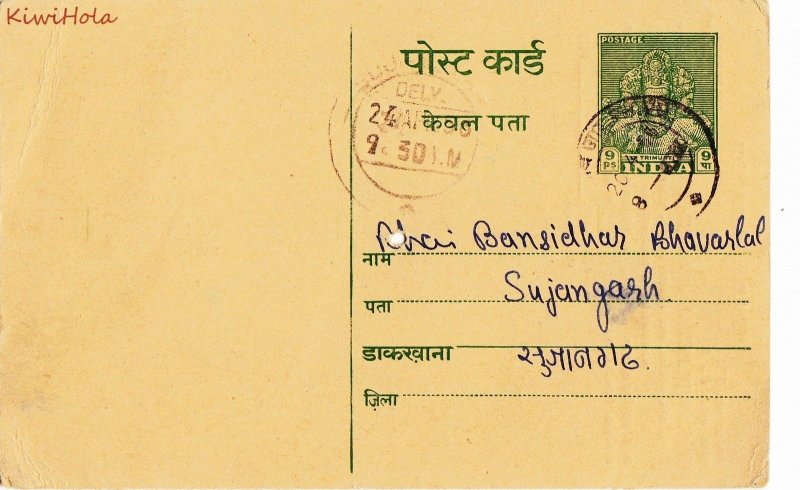 KiwiHola
पोस्ट कार्ड
केवल पता
POSTAGE
9 PS TRIMURTI 9 पा
INDIA
DELV.
24
9.30
नाम Bhai Bansidhar Bhavarlal
पता Sujangarh
डाकख़ाना सुजानगढ.
ज़िला